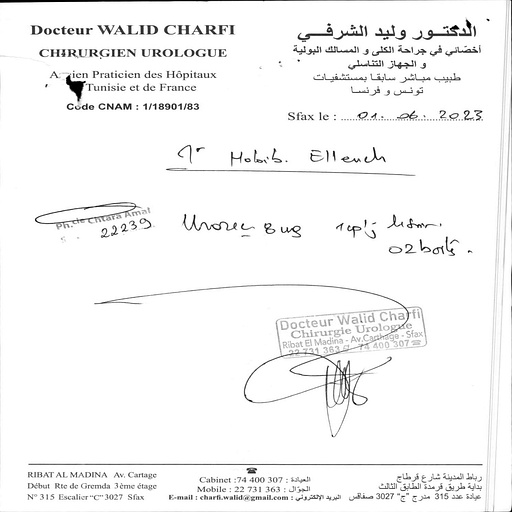 Docteur WALID CHARFI
CHIRURGIEN UROLOGUE
Ancien Praticien des Hôpitaux
Tunisie et de France
Code CNAM : 1/18901/83
الدكتور وليد الشرفي
أخصائي في جراحة الكلى و المسالك البولية
و الجهاز التناسلي
طبيب مباشر سابقا بمستشفيات
تونس و فرنسا
Sfax le : 01. 06. 2023
Mr Habib. Elleuch
Ph.cie Chtara Amal
22239
8 mg 1cp/j
02 boîtes.
Docteur Walid Charfi
Chirurgie Urologue
Ribat El Madina - Av.Carthage - Sfax
22 731 363 74 400 307
RIBAT AL MADINA Av. Cartage
Début Rte de Gremda 3ème étage
N° 315 Escalier "C" 3027 Sfax
Cabinet : 74 400 307 : العيادة
Mobile : 22 731 363 : الجوّال
E-mail : charfi.walid@gmail.com : البريد الالكتروني
رباط المدينة شارع قرطاج
بداية طريق قرمدة الطابق الثالث
عيادة عدد 315 مدرج "ج" 3027 صفاقس